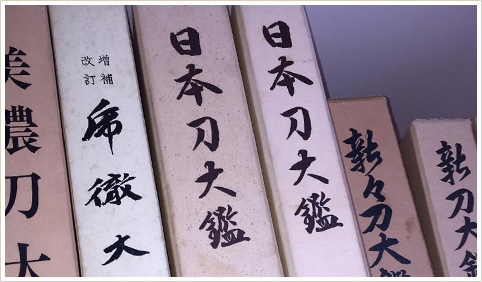 美濃刀大
増補
改訂
虎徹大
日本刀大鑑
日本刀大鑑
新々刀大鑑
新刀大鑑